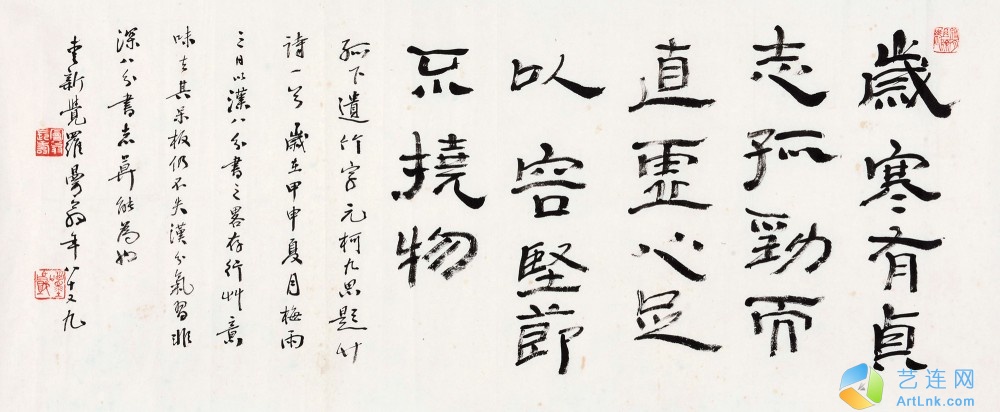 歲寒有貞
志孤勁而
直虛心足
以容堅節
不撓物
孤下遺竹字 元柯九思題竹
詩一首 歲在甲申夏月梅雨
三日以漢八分書之畧存行艸意
味去其呆板仍不失漢分氣習非
深八分書者莫能為也
愛新覺羅曼翁年八十又九
艺连网
ArtLnk.com